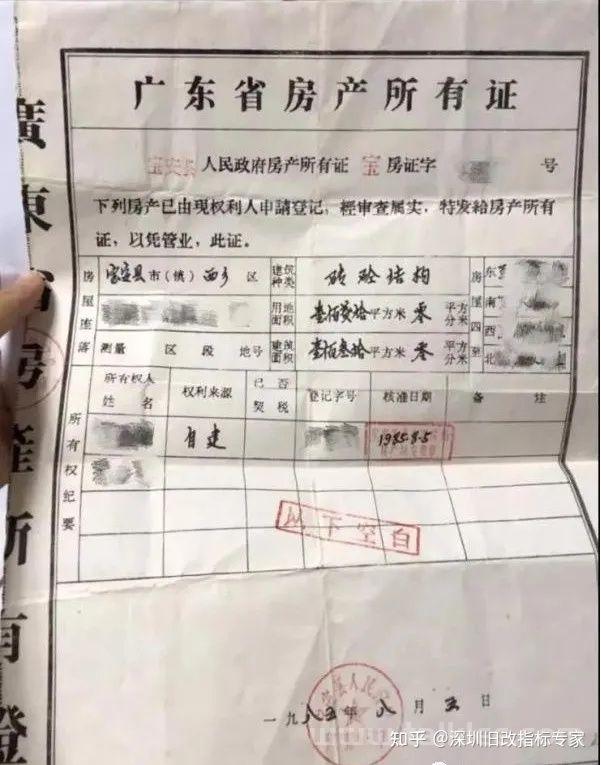 广东省房产所有证
宝安县人民政府房产所有证 宝 房证字 号
下列房产已由现权利人申請登记，經审查属实，特发給房产所有
证，以凭管业，此证。
房屋座落 宝安县市（镇）西乡 区 建筑种类 砖砼结构 房屋四至 东
用地面积 壹佰 拾平方米 零 平方分米 南
西
测量 区 段 地号 建筑面积 壹佰叁拾平方米 零 平方分米 北
所有权纪要 所有权人姓名 权利来源 已否契税 登记字号 核准日期 备注
自建 1985.8.5
以下空白
一九八五年八月五日
廣東省房產所有證
知乎 @深圳旧改指标专家